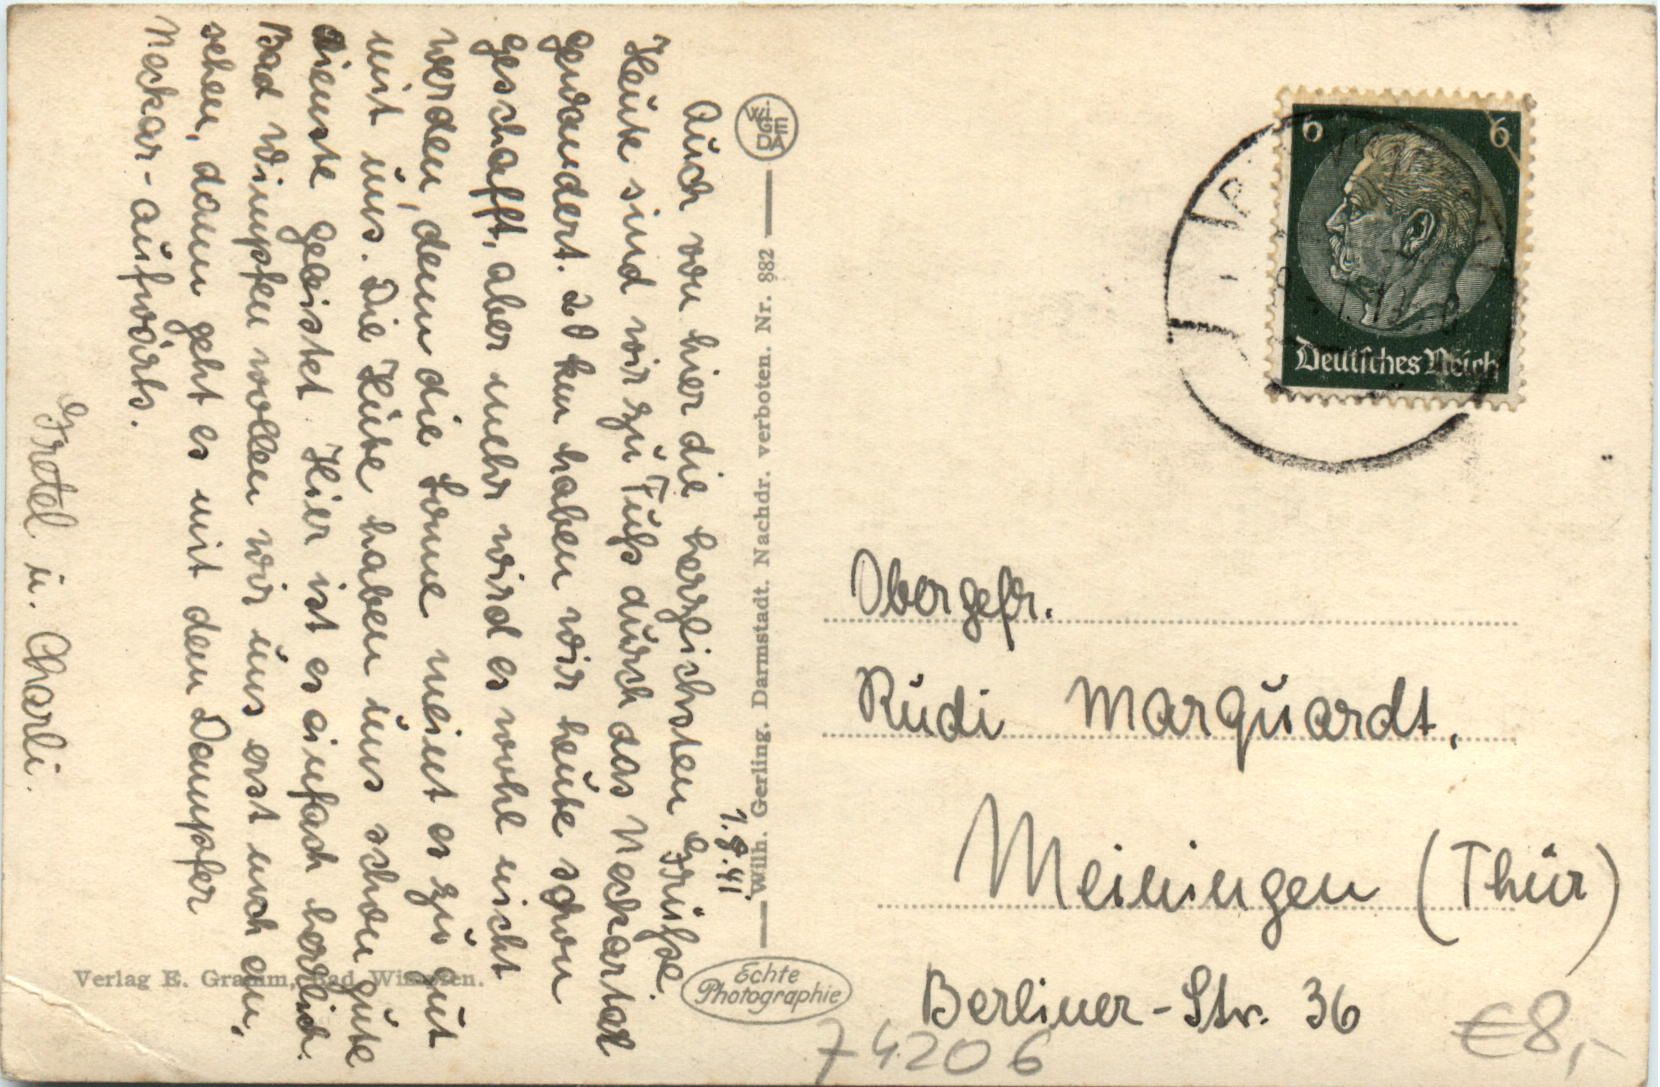 7.8.41.
Auch von hier die herzlichsten Grüße.
Heute sind wir zu Fuß durch das Neckartal
gewandert. 20 km haben wir heute schon
geschafft, aber mehr wird es wohl nicht
werden, denn die Sonne meint es zu gut
mit uns. Die Hüte haben uns schon gute
Dienste geleistet. Hier ist es einfach herrlich.
Bad Wimpfen wollen wir uns erst noch an-
sehen, dann geht es mit dem Dampfer
Neckar-aufwärts.
Gretel u. Charli.
Verlag E. Gramm, Bad Wimpfen.
WiGeDA
Wilh. Gerling, Darmstadt. Nachdr. verboten. Nr. 882
Echte
Photographie
6 6
Deutsches Reich
Obergefr.
Rudi Marquardt,
Meiningen (Thür)
Berliner-Str. 36
74206
€8,-